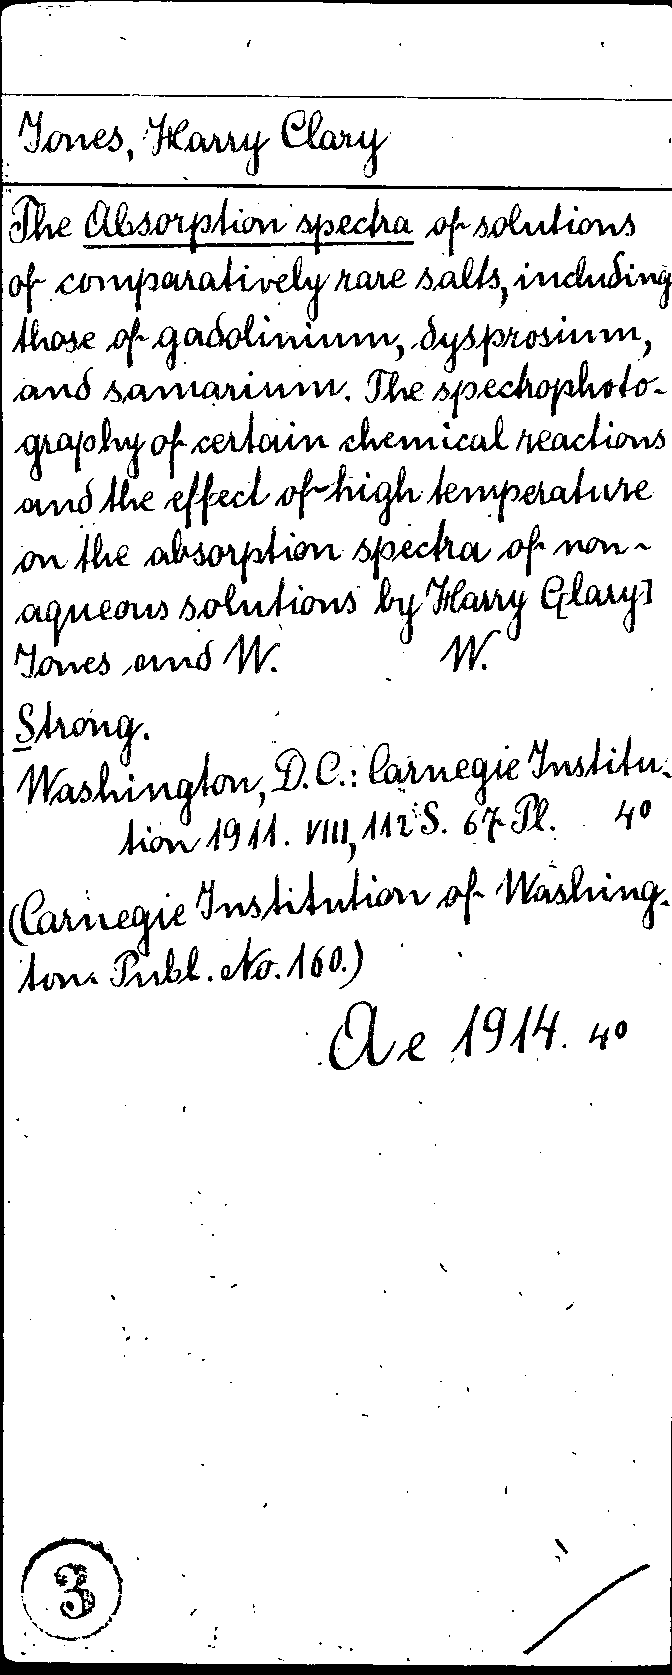 Jones, Harry Clary
The Absorption spectra of solutions
of comparatively rare salts, including
those of gadolinium, dysprosium,
and samarium. The spectrophoto-
graphy of certain chemical reactions
and the effect of high temperature
on the absorption spectra of non-
aqueous solutions by Harry C[lary]
Jones and W. W.
Strong.
Washington, D.C.: Carnegie Institu-
tion 1911. VIII, 112 S. 67 Pl. 4°
(Carnegie Institution of Washing-
ton. Publ. No. 160.)
Ae 1914. 4°
3